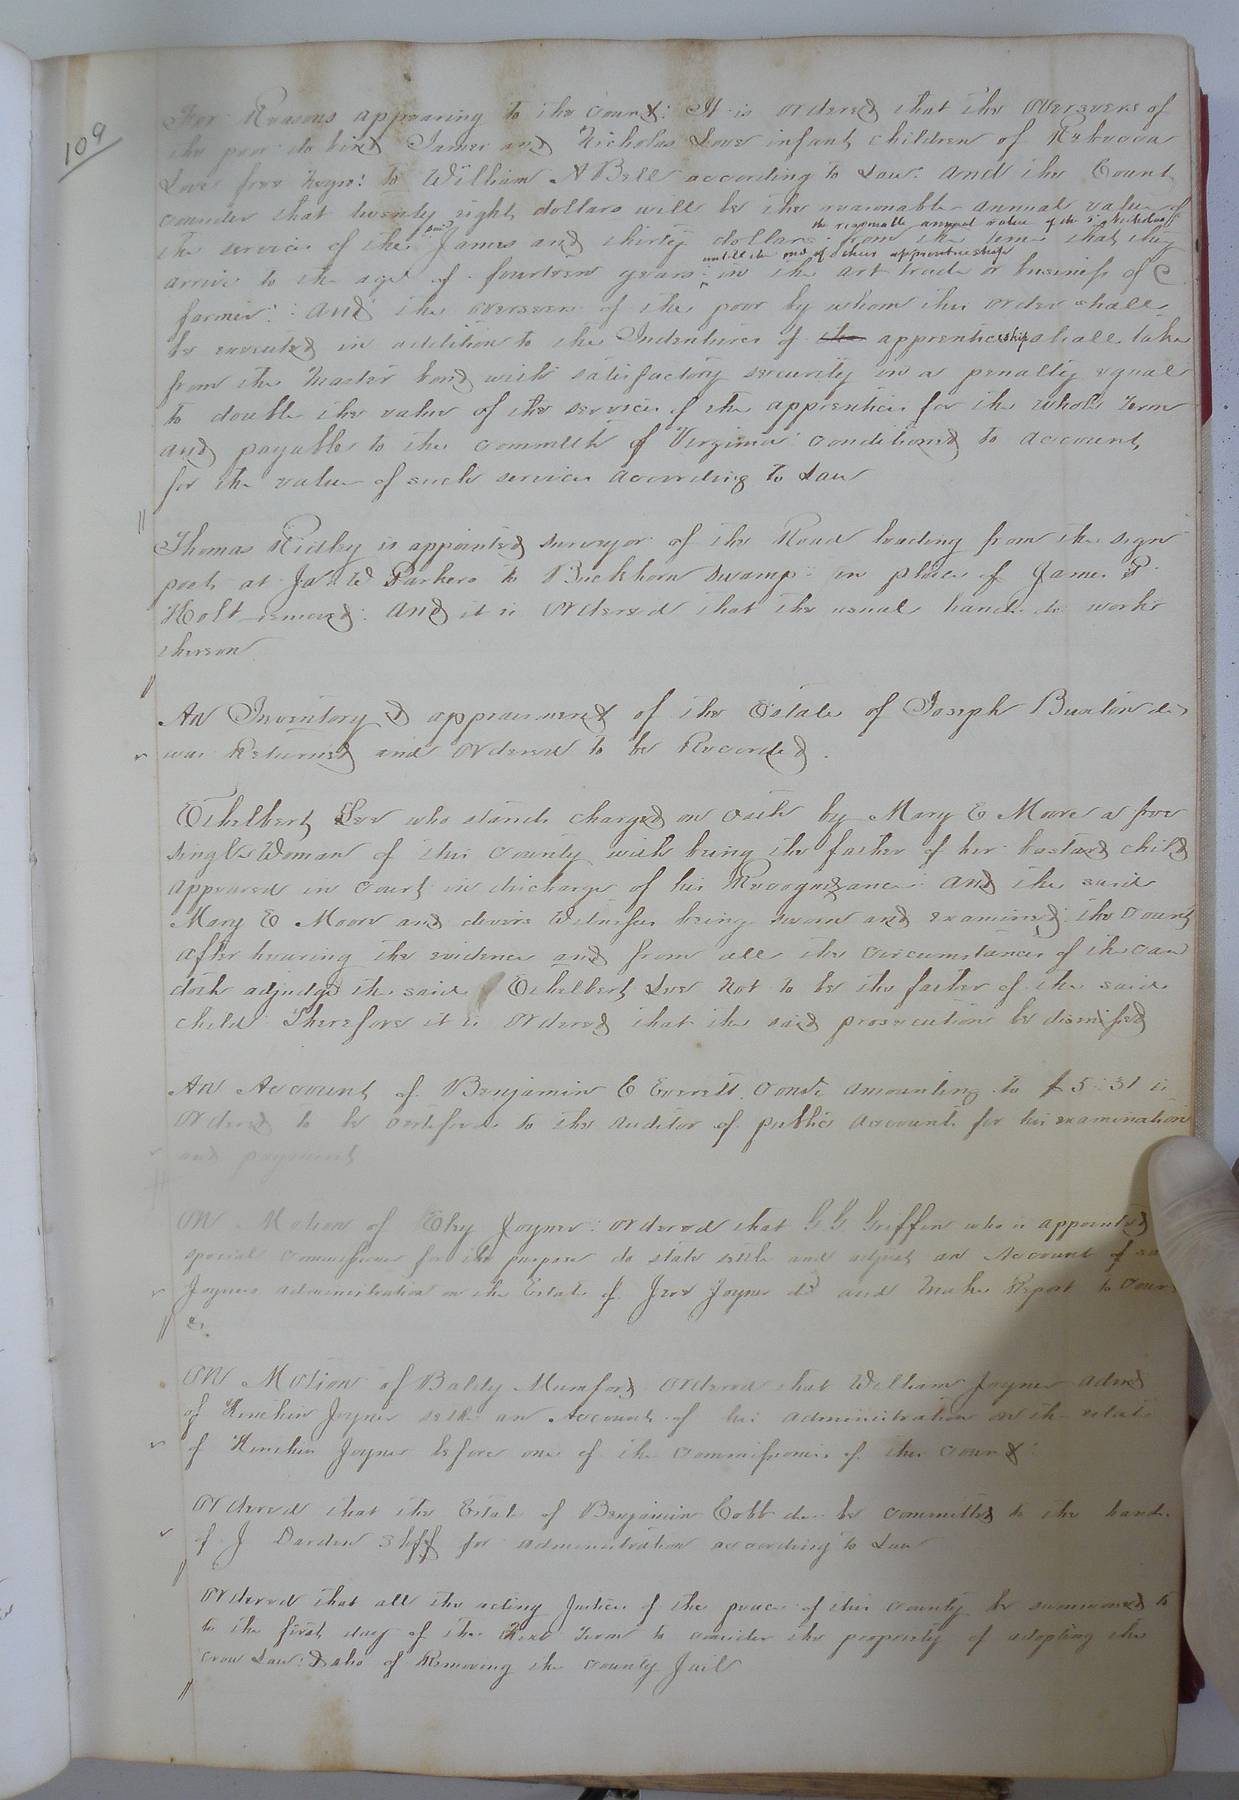 109
For Reasons appearing to the Court: It is ordered that the overseers of
the poor do bind James and Nicholas Love infant children of Rebecca
Love free negro: to William A Bell according to Law: and the Court
consider that twenty eight dollars will be the reasonable annual value of
the reasonable annual value of the s Nicholas
the service of the said James and thirty dollars from the time that they
untill the end of their apprenticeship
arrive to the age of fourteen years in the art trade or business of a
farmer: and the overseers of the poor by whom this order shall
be executed in addition to the Indentures of the apprenticeship shall take
from the master bond with satisfactory security in a penalty equal
to double the value of the service of the apprentice for the whole term
and payable to the commlth of Virginia conditioned to account
for the value of such services according to Law
Thomas Ridley is appointed surveyor of the Road leading from the sign
post at Ja. W Parkers to Buckhorn swamp in place of James P
Holt removed: and it is ordered that the usual hands do work
thereon
An Inventory & appraisement of the Estate of Joseph Buxton de
was Returned and ordered to be Recorded.
Ethelbert Lee who stands charged on oath by Mary E Moore a free
single Woman of this county with being the father of her bastard child
appeared in court in discharge of his Recognizance: and the said
Mary E Moore and divers Witnesses being sworn and examined the court
after hearing the evidence and from all the circumstances of the case
doth adjudge the said Ethelbert Lee not to be the father of the said
child Therefore it is ordered that the said prosecution be dismissed
An Account of Benjamin C Everett Const amounting to $5:31 is
ordered to be certified to the auditor of public accounts for his examination
and payment
On Motion of Joyner: ordered that G. G. Griffin who is appointed
special commissioner for the purpose do state settle and adjust an Account of sa
Joyners administration on the Estate of Joyner de and make Report to Court
&c.
On Motion of Baldy Mumford ordered that William Joyner admr
of Kinchin Joyner settle an Account of his administration on the estate
of Kinchin Joyner before one of the commissioners of this court:
Ordered that the Estate of Benjamin Cobb de be committed to the hands
of J Darden Shff for administration according to Law
Ordered that all the acting Justices of the peace of this county be summoned to
to the first day of the next Term to consider the propriety of adopting the
crow Law: & also of Removing the county Jail